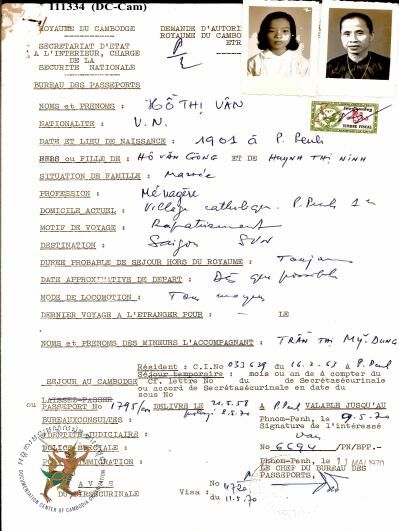 111334 (DC-Cam)
ROYAUME DU CAMBODGE DEMANDE D'AUTORI
ROYAUME DU CAMBO
SECRETARIAT D'ETAT ETR
A L'INTERIEUR, CHARGE
DE LA
SECURITE NATIONALE
BUREAU DES PASSEPORTS
NOMS et PRENOMS : HỒ THỊ VÂN
NATIONALITE : V.N.
TIMBRE FISCAL
DATE ET LIEU DE NAISSANCE : 1901 à P. Penh
ou FILLE DE : HỒ VĂN CONG ET DE HUỲNH THỊ NINH
SITUATION DE FAMILLE : Mariée
PROFESSION : Ménagère
DOMICILE ACTUEL : Village catholique P. Penh
MOTIF DE VOYAGE : Rapatriement
DESTINATION : Saigon SVN
DUREE PROBABLE DE SEJOUR HORS DU ROYAUME : Toujours
DATE APPROXIMATIVE DE DEPART : Dès que possible
MODE DE LOCOMOTION : Tous moyens
DERNIER VOYAGE A L'ETRANGER POUR : - LE
NOMS et PRENOMS DES MINEURS L'ACCOMPAGNANT : TRẦN THỊ MỸ DUNG
Résident : C.I.No 033629 du 16.2.63 à P. Penh
Séjour temporaire : mois ou an à compter du
SEJOUR AU CAMBODGE Cf. lettre No du de Secrétasécurinale
ou accord de Secrétasécurinale en date du
LAISSEZ-PASSER sous No
ou PASSEPORT No 1795 DELIVRE LE 21.5.58 A P. Penh VALABLE JUSQU'AU
8.5.70 Phnom-Penh, le 9.5.70
BUREAUCONSULTES : Signature de l'intéressé
IDENTITE JUDICIAIRE : Van
POLICE SPECIALE : No 6694 /PN/BPP.-
POLICE IMMIGRATION : Phnom-Penh, le 11 MAI 1970
LE CHEF DU BUREAU DES
PASSEPORTS,
AVIS No 4720
DU SECRECURINALE Visa : du 11.5.70
DOCUMENTATION CENTER OF CAMBODIA